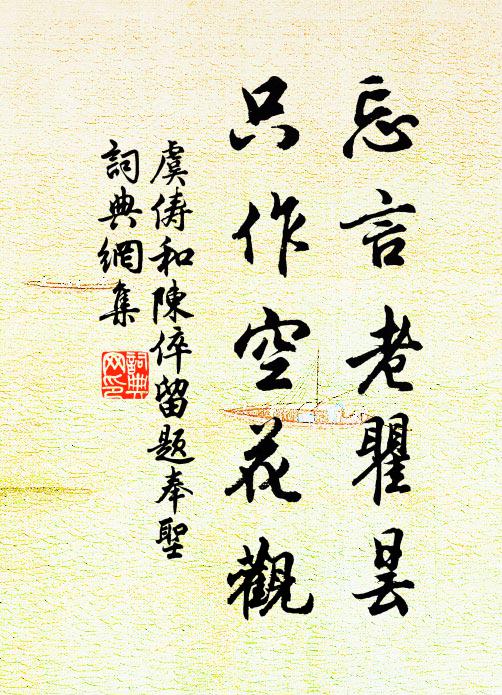 忘言老瞿昙
只作空花觀
虞儔和陳倅留題奉聖
詞典網集
詞典
网印